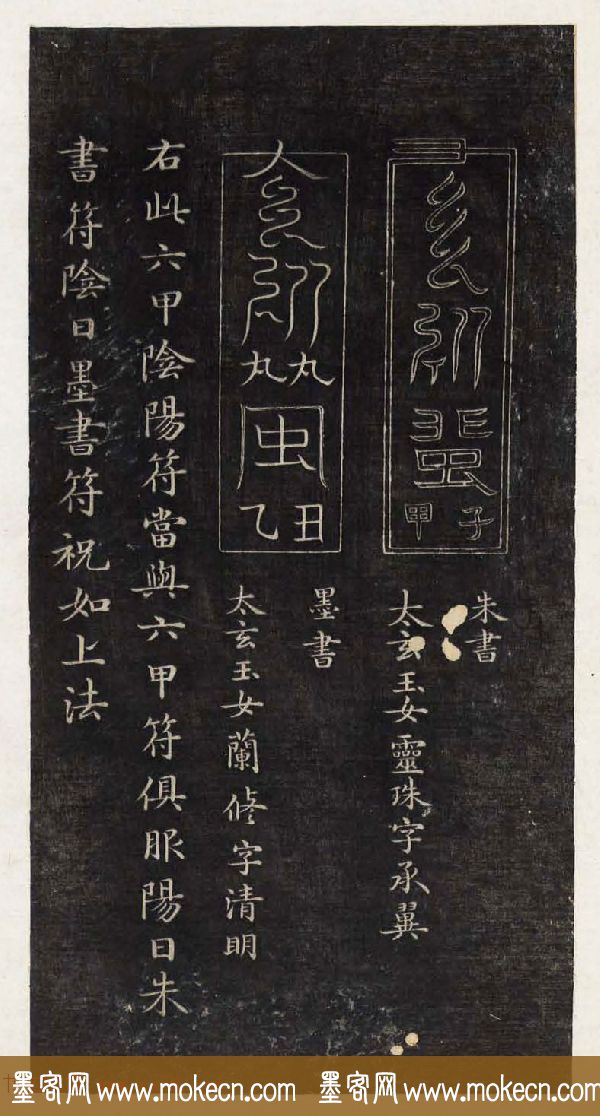 甲子
朱書
太玄玉女靈珠字承翼
虫
乙丑
墨書
太玄玉女蘭修字清明
右此六甲陰陽符當與六甲符俱服陽日朱
書符陰日墨書符祝如上法
墨客网 www.mokecn.com 墨客网 www.mokecn.com